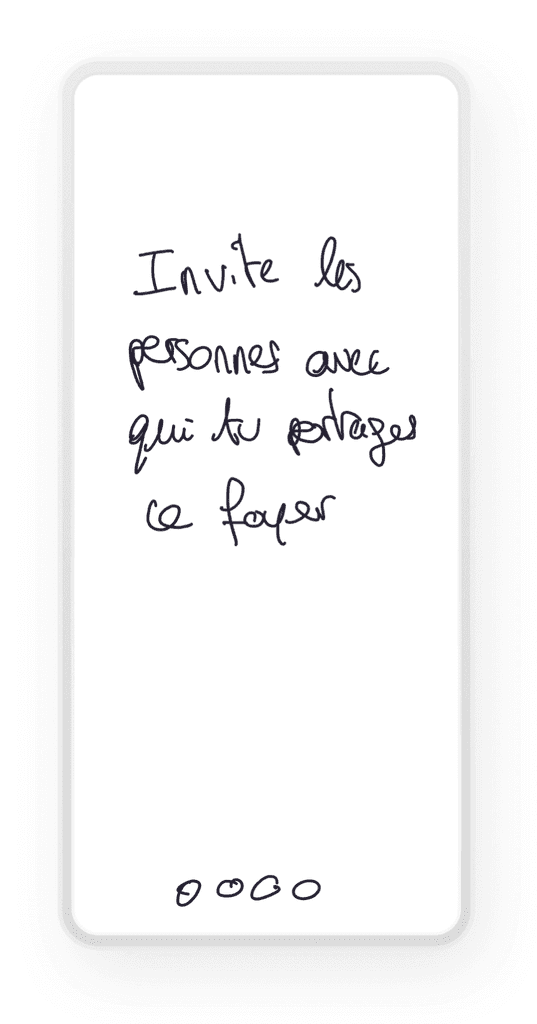 Invite les
personnes avec
qui tu partages
ce foyer